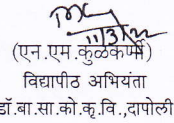 11/3/22
(एन.एम.कुळकर्णी)
विद्यापीठ अभियंता
डॉ.बा.सा.को.कृ.वि.,दापोली